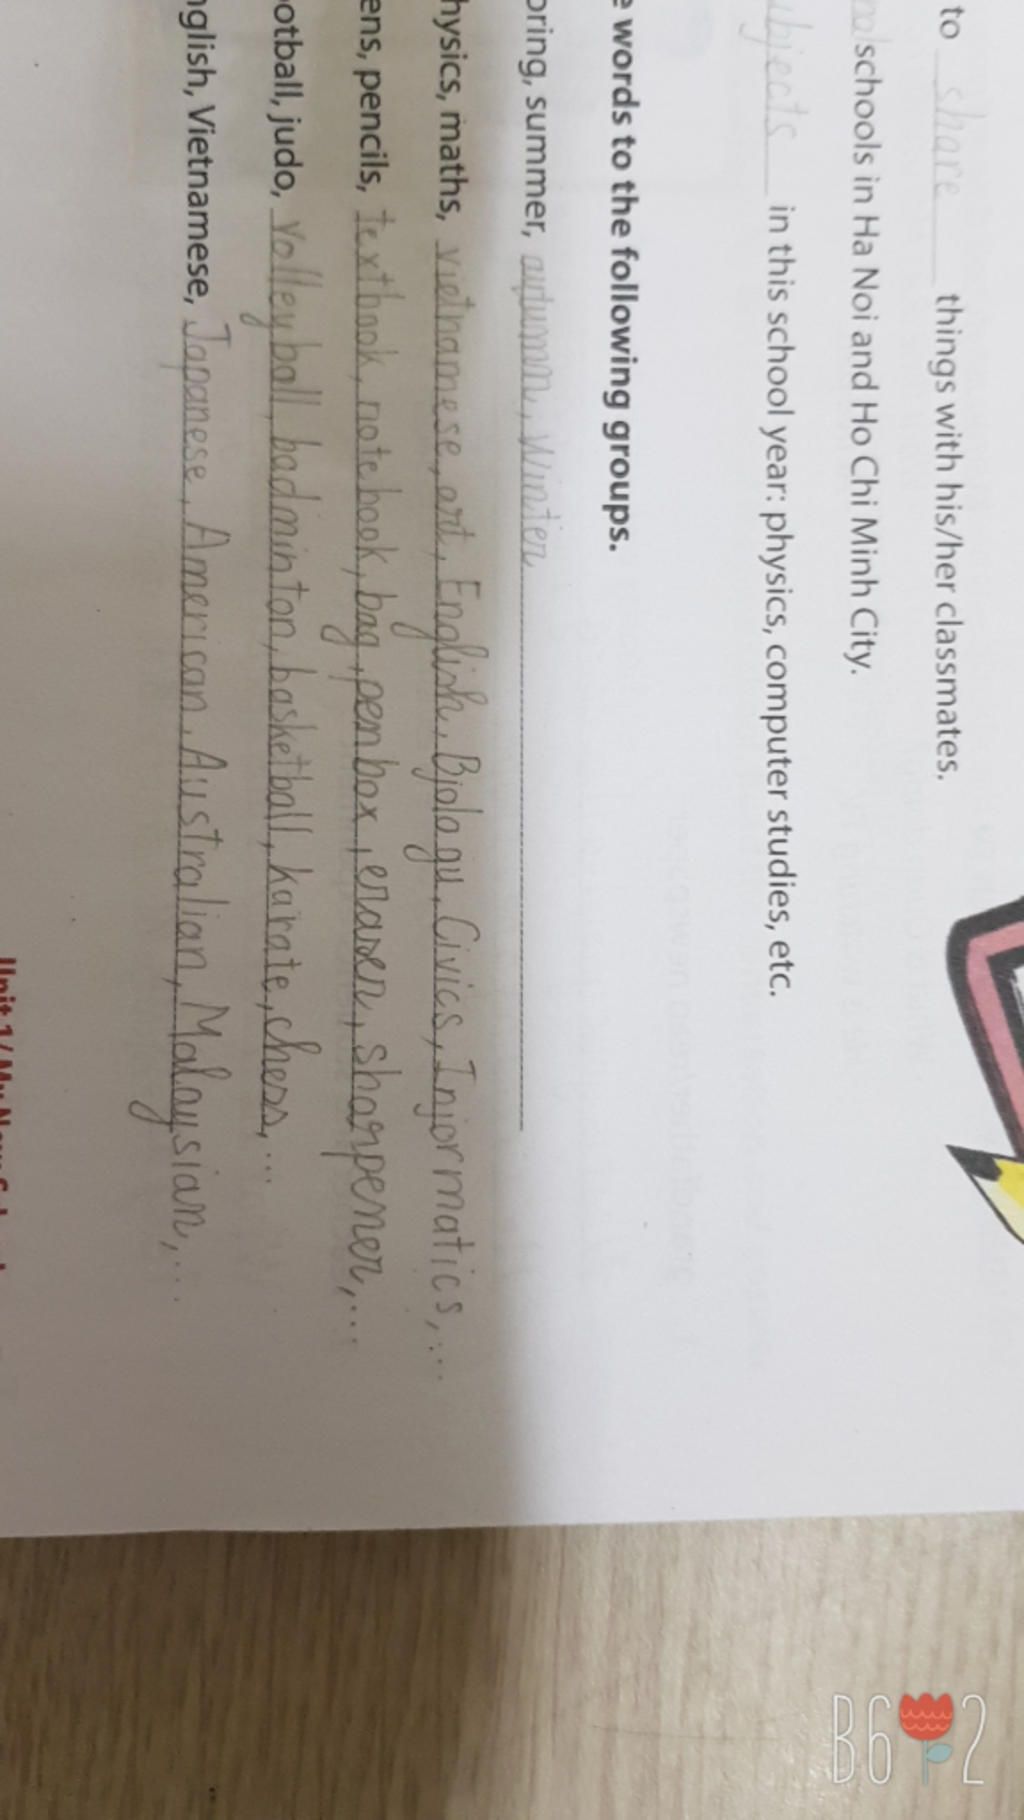 to share things with his/her classmates.
schools in Ha Noi and Ho Chi Minh City.
ubjects in this school year: physics, computer studies, etc.
e words to the following groups.
oring, summer, autumn, Winter
hysics, maths, vietnamese, art, English, Biology, Civics, Informatics, ...
ens, pencils, textbook, notebook, bag, penbox, eraser, sharpener, ...
ootball, judo, volleyball, badminton, basketball, karate, chess, ...
nglish, Vietnamese, Japanese, American, Australian, Malaysian, ...
Unit 1/ My New
B6 2